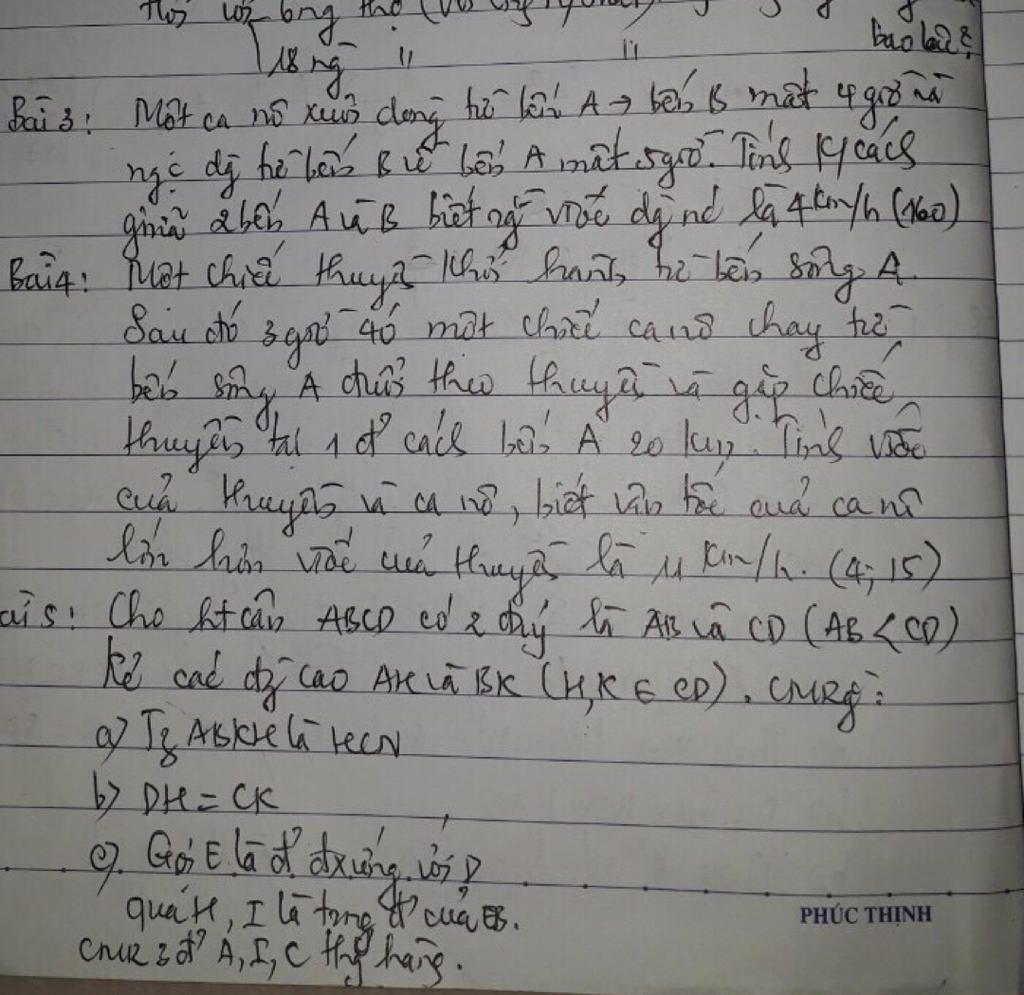 thợ (
18 ng " "
bao lâu?
Bài 3: Một ca nô xuôi dòng từ bến A → bến B mất 4 giờ và
ngc dg từ bến B về bến A mất 5 giờ. Tính k/cách
giữa 2 bến A và B biết vtốc dg nc là 4 km/h (160)
Bài 4: Một chiếc thuyền khởi hành từ bến sông A.
Sau đó 3 giờ 40 một chiếc ca nô chạy từ
bến sông A đuổi theo thuyền và gặp chiếc
thuyền tại 1 đ' cách bến A 20 km. Tính vtốc
của thuyền và ca nô, biết vận tốc của ca nô
lớn hơn vtốc của thuyền là 11 km/h. (4; 15)
ài 5: Cho ht cân ABCD có 2 đáy là AB và CD (AB < CD)
kẻ các đg cao AH và BK (H, K ∈ CD). CMRg:
a) Tg ABKH là HCN
b) DH = CK
c). Gọi E là đ' đxứng với D
qua H, I là trng đ' của EB.
CMR 3 đ' A, I, C thg hàng.
PHÚC THỊNH